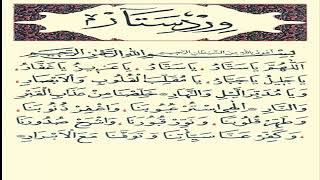 ورد ستار
اعوذ بالله من الشيطان الرجيم بسم الله الرحمن الرحيم
اَللّٰهُمَّ يَا سَتَّارُ يَا سَتَّارُ يَا عَزِيزُ يَا غَفَّارُ
يَا جَلِيلُ يَا جَبَّارُ يَا مُقَلِّبَ الْقُلُوبِ وَالْاَبْصَارِ
وَيَا مُدَبِّرَ الَّيْلِ وَالنَّهَارِ خَلِّصْنَا مِنْ عَذَابِ الْقَبْرِ
وَالنَّارِ اِلٰهِي اُسْتُرْ عُيُوبَنَا وَاغْفِرْ ذُنُوبَنَا
وَطَهِّرْ قُلُوبَنَا وَنَوِّرْ قُبُورَنَا وَاشْرَحْ صُدُورَنَا
وَكَفِّرْ عَنَّا سَيِّآتِنَا وَتَوَفَّنَا مَعَ الْاَبْرَارِ